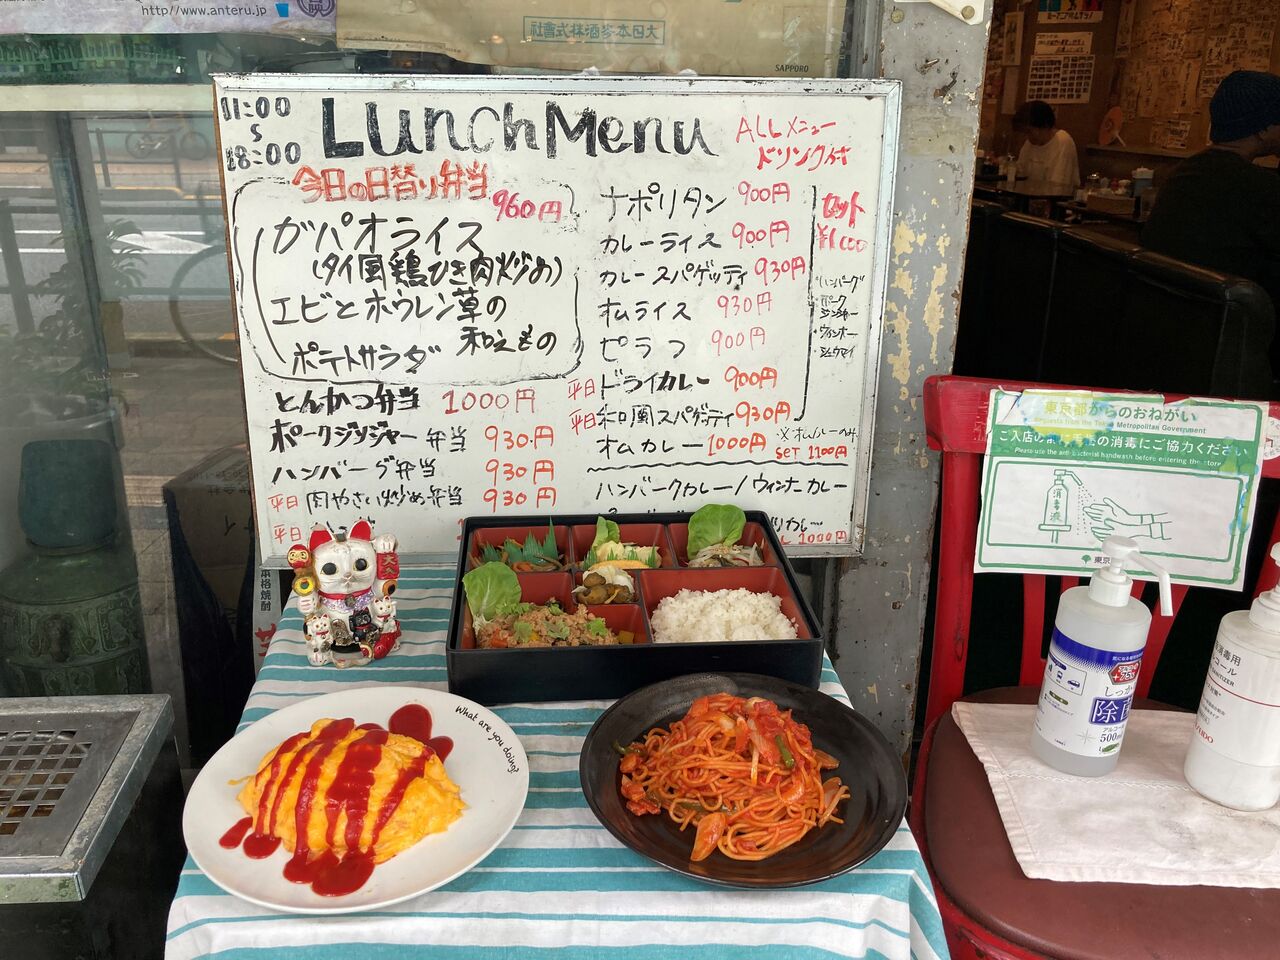 http://www.anteru.jp
大日本麥酒株式會社
SAPPORO
11:00
18:00
Lunch Menu
ALLメニュー
ドリンク付
今日の日替り弁当
960円
ガパオライス
(タイ風鶏ひき肉炒め)
エビとホウレン草の
和えもの
ポテトサラダ
とんかつ弁当 1000円
ポークジンジャー弁当 930円
ハンバーグ弁当 930円
平日 肉やさい炒め弁当 930円
平日
ナポリタン 900円
カレーライス 900円
カレースパゲッティ 930円
オムライス 930円
ピラフ 900円
平日 ドライカレー 900円
平日 和風スパゲティ 930円
オムカレー 1000円
※オムカレーのみ
SET 1100円
セット
¥1100
ハンバーグ
ポーク
ジンジャー
ウィンナー
シュウマイ
ハンバーグカレー/ウィンナーカレー
カレー
1000円
本格焼酎
What are you doing?
東京都からのおねがい
Requests from the Tokyo Metropolitan Government
ご入店の
の消毒にご協力ください
Please use the anti-bacterial handwash before entering the store
消毒液
東京
しっかり
除菌
アルコール
500ml
消毒用